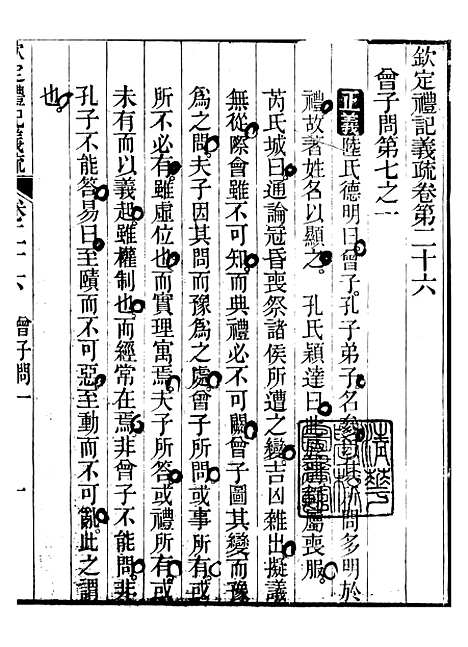 欽定禮記義疏卷第二十六
曾子問第七之一
正義陸氏德明曰曾子孔子弟子名參問多明於
禮故著姓名以顯之 孔氏穎達曰此於別錄屬喪服
芮氏城曰通論冠昏喪祭諸侯所遭之變吉凶雜出擬議
無從際會雖不可知而典禮必不可闕曾子圖其變而豫
為之問夫子因其問而豫為之處曾子所問或事所
所不必有雖虛位也而實理寓焉夫子所答或禮所有或
未有而以義起雖權制也而經常在焉非曾子不能問非
孔子不能答易曰至賾而不可惡至動而不可亂此之謂
也
欽定禮記義疏 卷二十六 曾子問一 一
清華